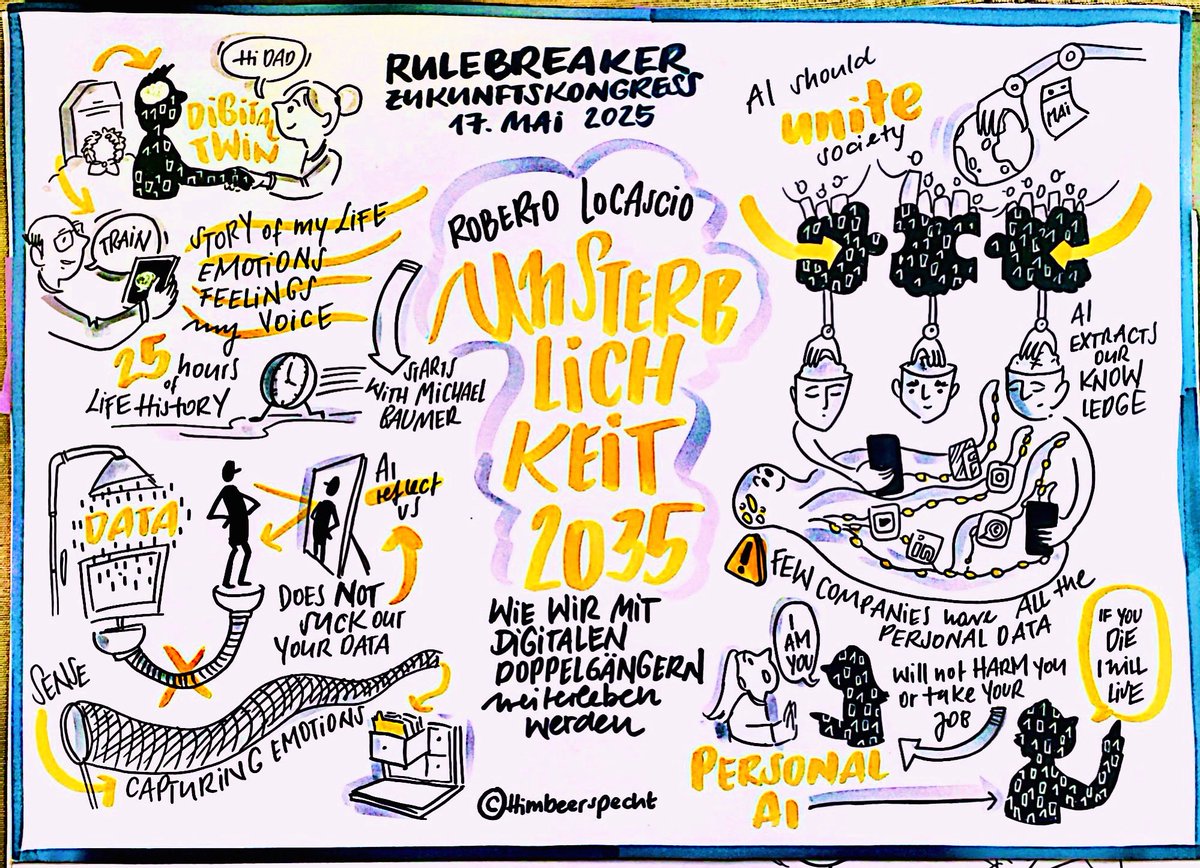 RULEBREAKER
ZUKUNFTSKONGRESS
17. MAI 2025
ROBERTO LOCASCIO
UNSTERB
LICH
KEIT
2035
WIE WIR MIT
DIGITALEN
DOPPELGÄNGERN
weiterleben
werden
©Himbeerspecht
Hi DAD
DIGITAL
TWIN
TRAIN
STORY of my LIFE
EMOTIONS
FEELINGS
my VOICE
25 hours
of
LIFE HISTORY
STARTS
WITH MICHAEL
BAUMER
DATA
AI
reflect
US
DOES NOT
SUCK OUT
YOUR DATA
SENSE
CAPTURING EMOTIONS
AI should
unite
society
MAI
AI
EXTRACTS
OUR
KNOW
LEDGE
in
FEW COMPANIES have ALL the
PERSONAL DATA
I
AM
YOU
will not HARM YOU
or take YOUR
JOB
IF YOU
DIE
I WILL
LIVE
PERSONAL
AI